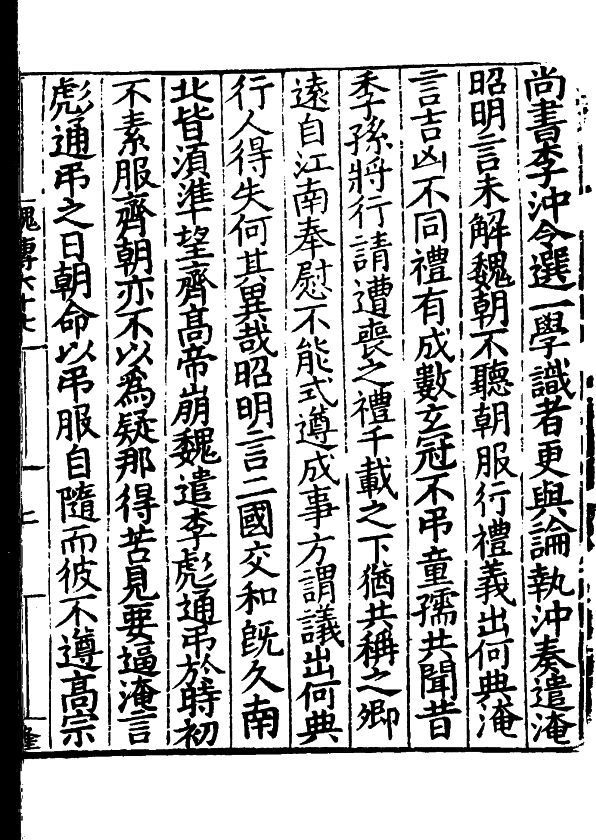 尚書李沖令選一學識者更與論執沖奏遣淹
昭明言未解魏朝不聽朝服行禮義出何典淹
言吉凶不同禮有成數玄冠不弔童孺共聞昔
季孫將行請遭喪之禮千載之下猶共稱之卿
遠自江南奉慰不能式遵成事方謂議出何典
行人得失何其異哉昭明言二國交和旣久南
北皆須準望齊高帝崩魏遣李彪通弔於時初
不素服齊朝亦不以為疑那得苦見要逼淹言
彪通弔之日朝命以弔服自隨而彼不遵高宗